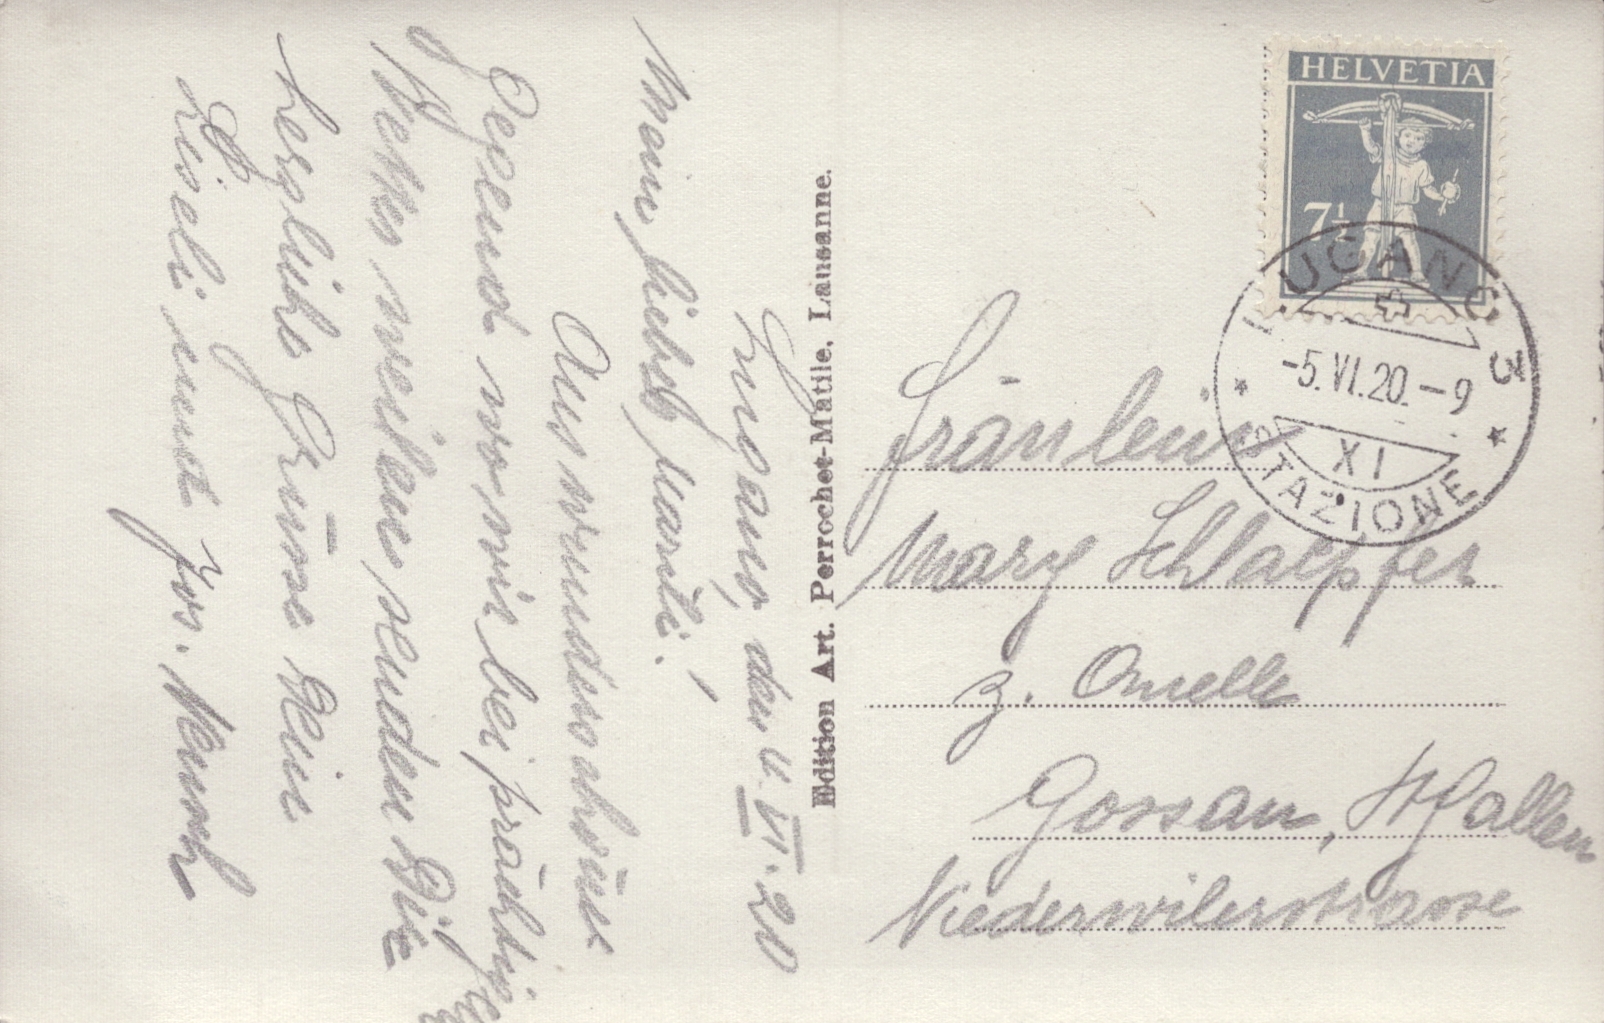 Lugano, den 4. VI. 20
Mein liebes Marili!
Aus wunderschöner
Gegend wo wir bei prächtigem
Wetter weilen senden Dir
herzliche Grüsse Dein
Liseli und Jos.
Edition Art. Perrochet-Matile, Lausanne.
HELVETIA
7½
LUGANO 3
-5.VI.20.-9
XI
STAZIONE
Fräulein
Mary Schlaepfer
z. Quelle
Gossau, St. Gallen
Niederwilerstrasse